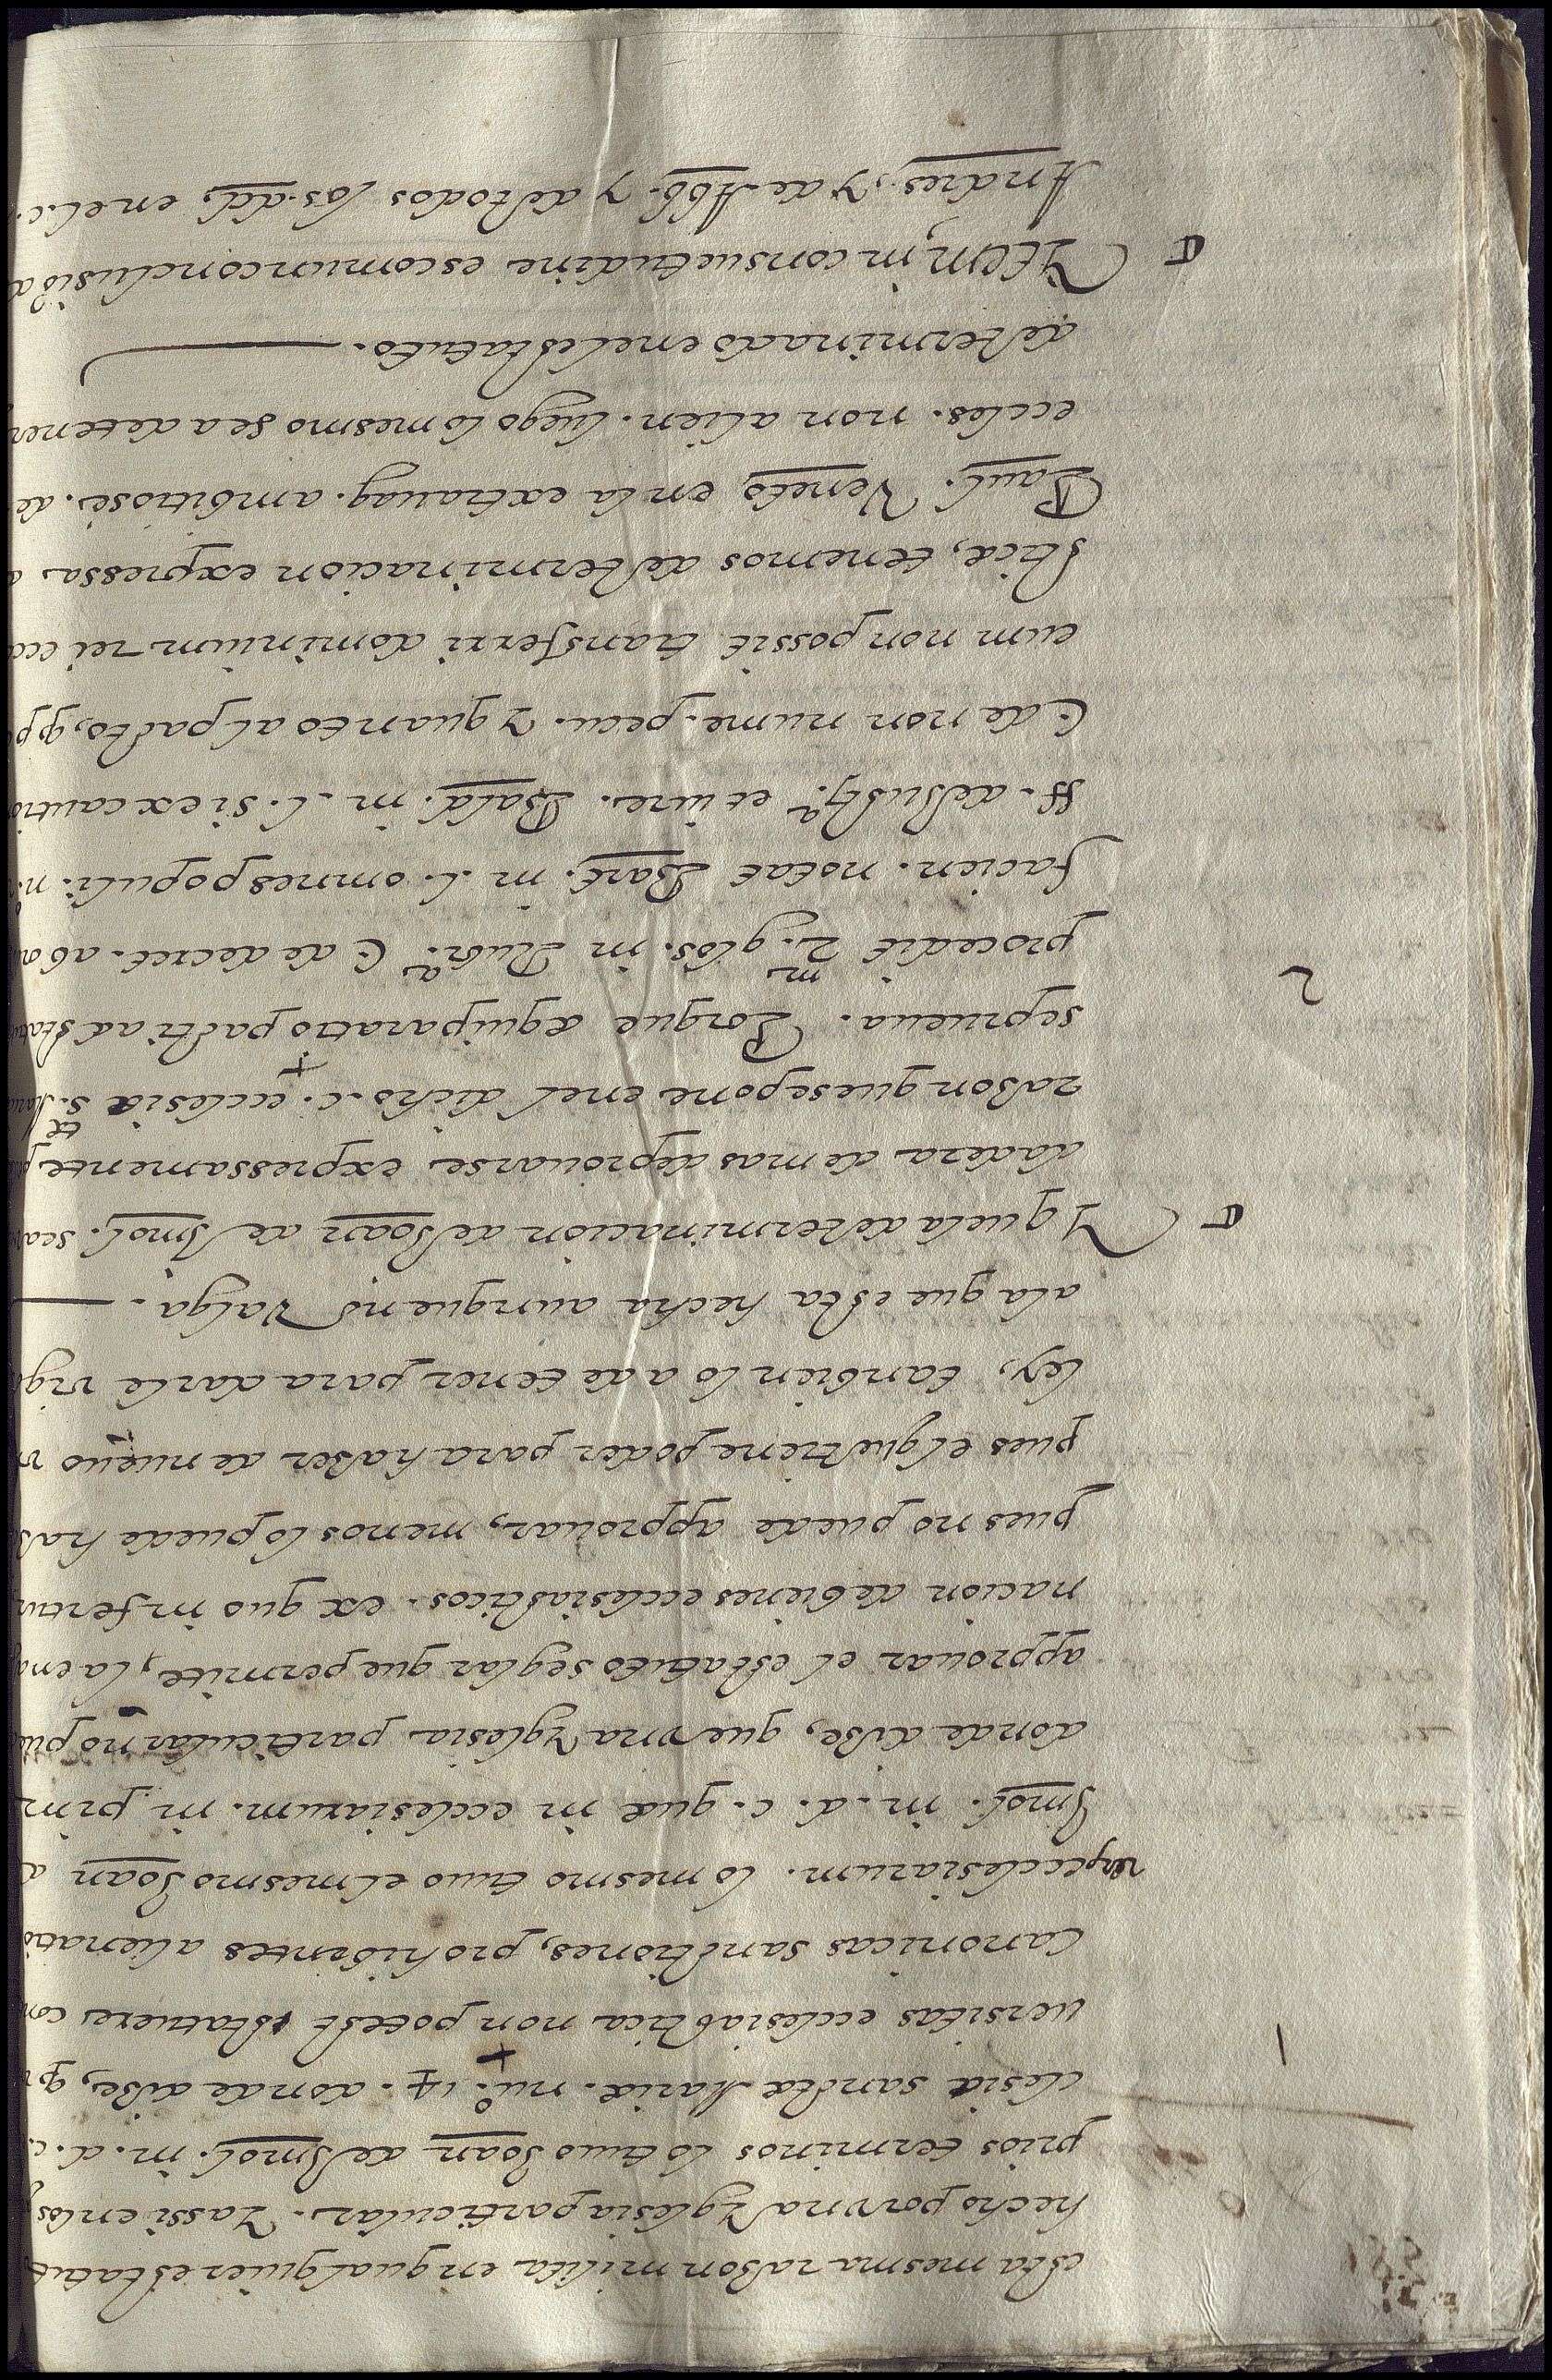 esta mesma rason milita en qualquier estatut
hecho por vna Yglesia particular. Y assi en los
prios terminos lo tuuo Joan de Imol. in. d. c.
clesia sanctæ Mariæ. nu.º 14. donde dise, q
uersitas ecclesiastica non potest statuere con
Canonicas sanctiones, prohibentes alienatio
ecclesiarum. lo mesmo tuuo el mesmo Joan
Imol. in. d. c. quæ in ecclesiarum. in prin
donde dise, que vna Yglesia particular no pu
approuar el estatuto seglar que permite, la ena
nacion de bienes ecclesiasticos. ex quo infertur
pues no puede approuar, menos lo puede has
pues el que tiene poder para haser de nueuo
ley, tanbien lo a de tener para darle vigo
a la que esta hecha aunque no Valga.
Y que la determinacion de Joan de Imol. sea
dadera de mas de prouarse expressamente
rason que se pone en el dicho. c. ecclesiæ S. Mari
se prueua. Porque æquiparatio pacti ad statu
procedit 2. glos. in Rubr.ª C. de decret. ab
facien. notat Bart. in. l. omnes populi. n.
ff. de iust.ª et iure. Bald. in. l. si ex cautio
C. de non nume. pecu. y quanto al pacto, q p
cum non possit transferri dominium rei ecc
sticæ, tenemos determinacion expressa
Paul. Veneto, en la extrauag. ambitiosæ. de
eccles. non alien. luego lo mesmo se a de tener
determinado en el estatuto.
Item, in consuetudine es comun conclusiō
Andres, y de Abb. y de todos los dd, en el. c.
1
2